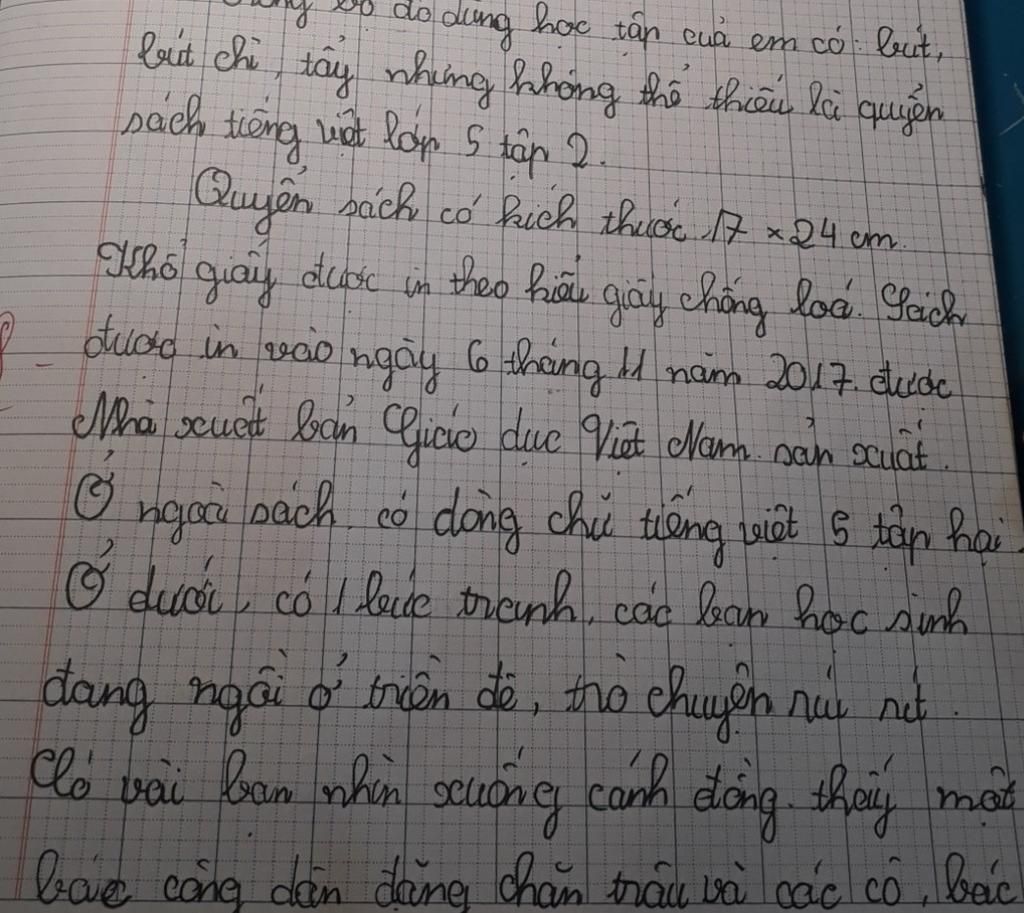 bộ đồ dùng học tập của em có: bút,
bút chì, tẩy nhưng không thể thiếu là quyển
sách tiếng việt lớp 5 tập 2.
Quyển sách có kích thước 17 x 24 cm.
Khổ giấy được in theo kiểu giấy chống loá. Sách
được in vào ngày 6 tháng 11 năm 2017. được
Nhà xuất bản Giáo dục Việt Nam sản xuất.
Ở ngoài sách có dòng chữ tiếng việt 5 tập hai.
Ở dưới, có 1 bức tranh, các bạn học sinh
đang ngồi ở triền đê, trò chuyện ríu rít.
Có vài bạn nhìn xuống cánh đồng thấy một
bác công dân đang chăn trâu và các cô, bác